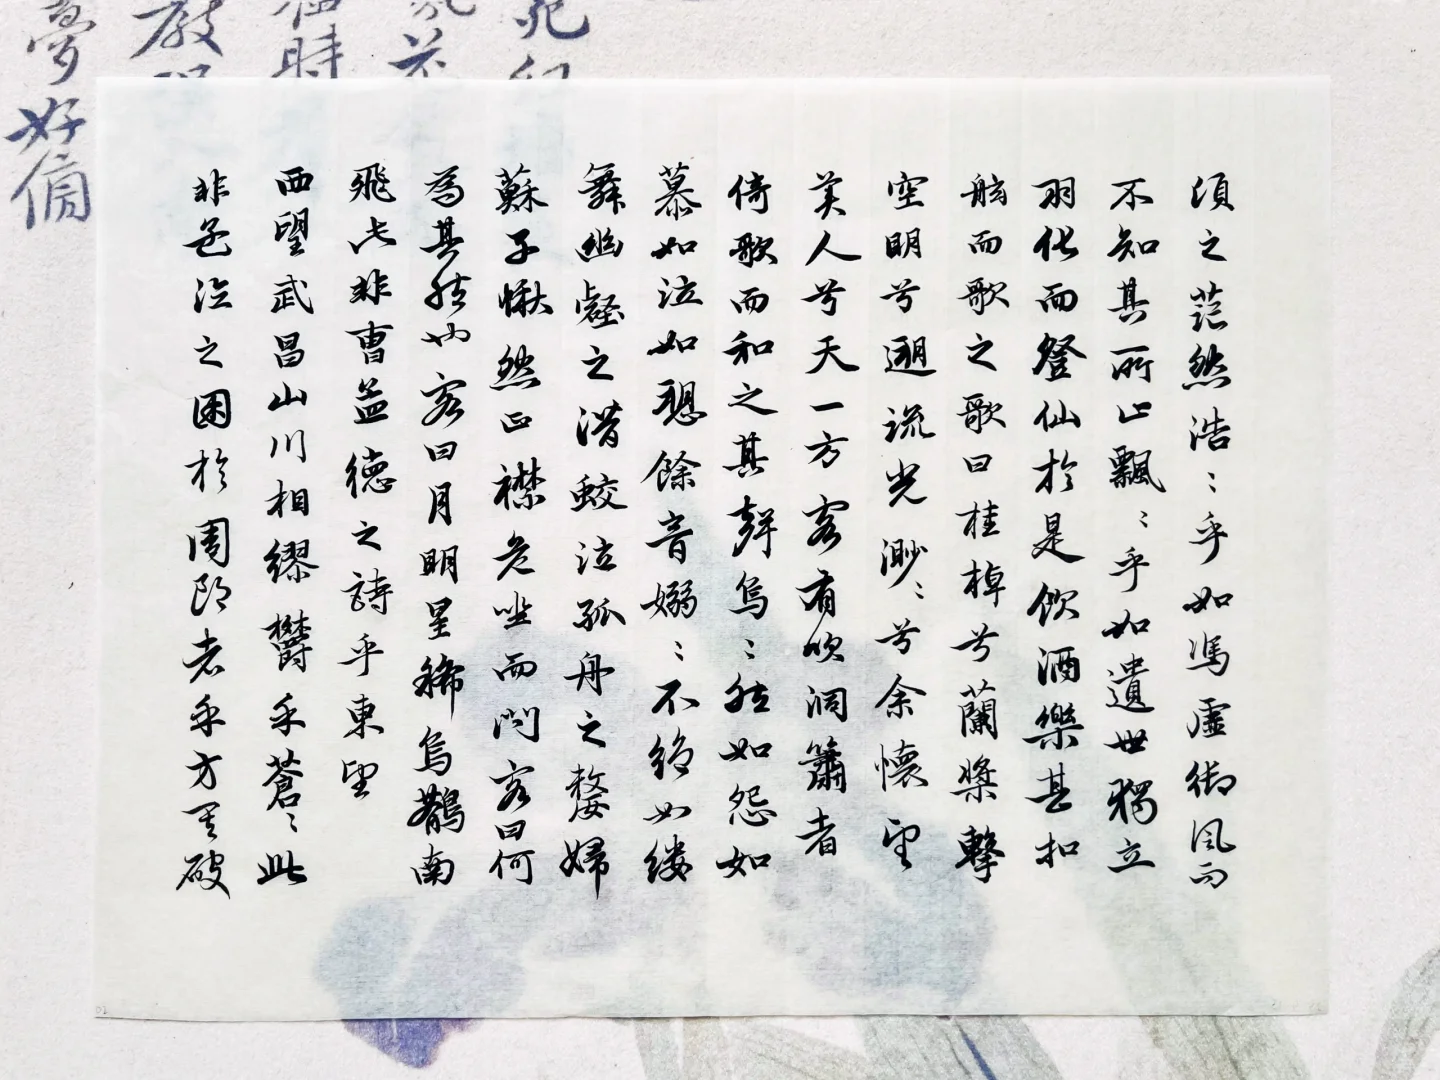 頃之茫然浩〻乎如馮虛御風而
不知其所止飄〻乎如遺世獨立
羽化而登仙於是飲酒樂甚扣
舷而歌之歌曰桂棹兮蘭槳擊
空明兮遡流光渺〻兮余懷望
美人兮天一方客有吹洞簫者
倚歌而和之其聲烏〻然如怨如
慕如泣如愬餘音嫋〻不絕如縷
舞幽壑之潛蛟泣孤舟之嫠婦
蘇子愀然正襟危坐而問客曰何
為其然也客曰月明星稀烏鵲南
飛此非曹孟德之詩乎東望
西望武昌山川相繆鬱乎蒼〻此
非孟德之困於周郎者乎方其破
時
教
夢好